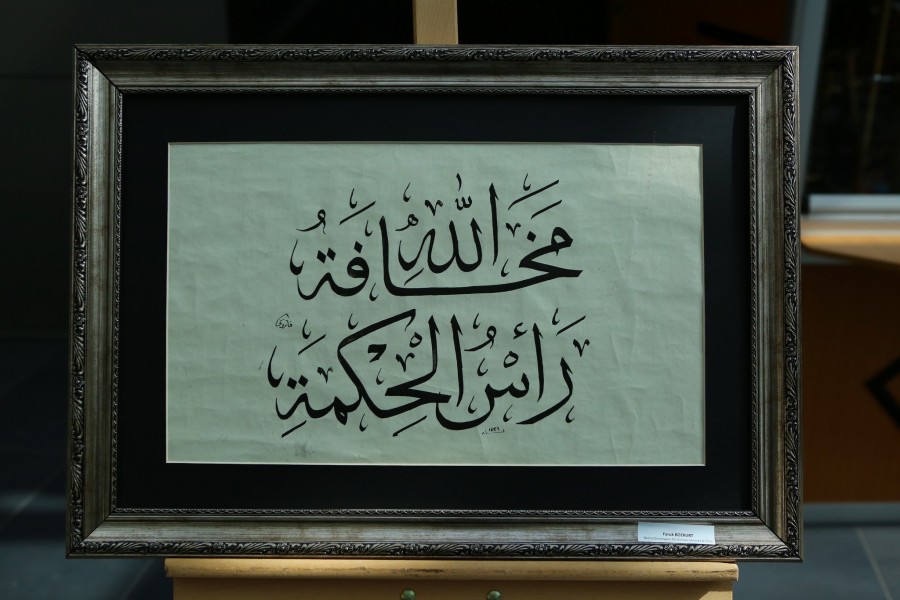 مَخَافَةُ اللّٰهِ
رَأْسُ الْحِكْمَةِ
١٤٣٦
Faruk BOZKURT